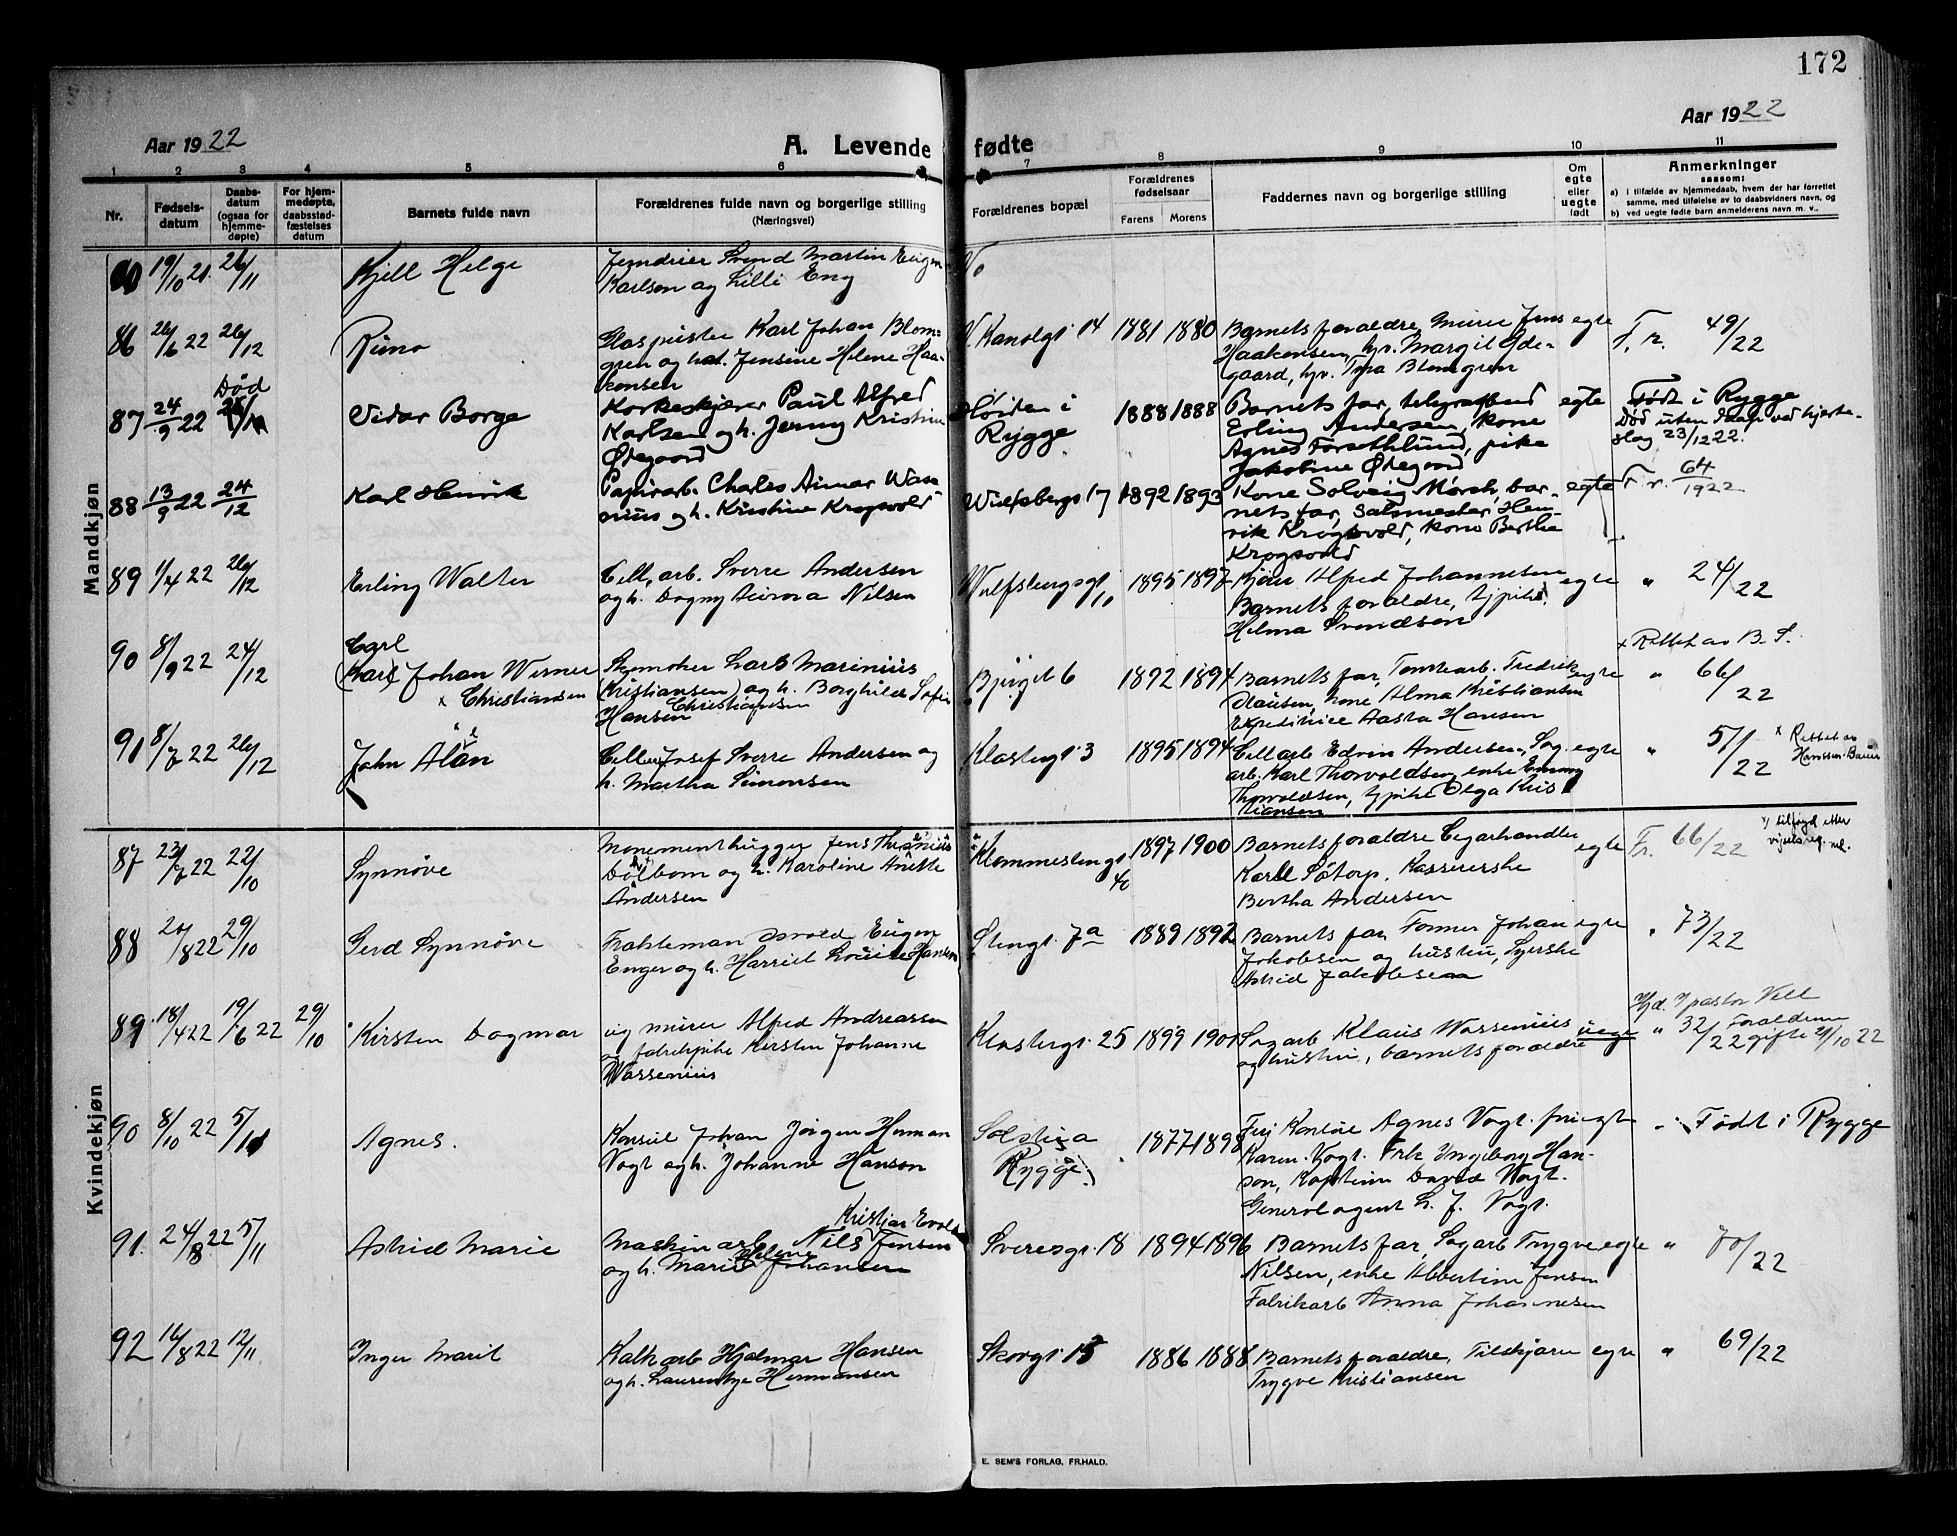 172
Aar 1922
A. Levende
fødte
Aar 1922
1 2 3 4 5 6 7 8 9 10 11
Nr.
Fødsels-
datum
Daabs-
datum
(ogsaa for
hjemme-
døpte)
For hjem-
medøpte,
daabsstad-
fæstelses
datum
Barnets fulde navn
Forældrenes fulde navn og borgerlige stilling
(Næringsvei)
Forældrenes bopæl
Forældrenes
fødselsaar
Farens Morens
Faddernes navn og borgerlige stilling
Om
egte
eller
uegte
født
Anmerkninger
saasom:
a) i tilfælde av hjemmedaab, hvem der har forrettet
samme, med tilføielse av to daabsvidners navn, og
b) ved uegte fødte barn anmelderens navn m. v..
Mandkjøn
19/10 21 26/11 Kjell Helge
Svend Martin Eugen
Karlsen og Lilli Eng
86 26/6 22 26/12 Runo
Glaspuster Karl Johan Blom-
gren og h. Jensine Helene Haa-
konsen
14 1881 1880
Barnets forældre, Murer Jens
Haakonsen, hv. Margit Øde-
gaard, hv. Blomgren
egte F. r. 49/22
87 24/9 22 Død
Vidar Borge
Korkeskjærer Paul Alfred
Karlsen og h. Jenny Kristine
Ødegaard
Høiden i
Rygge
1888 1888
Barnets far, telegrafbud
Erling Andersen, kone
Agnes Forsthlund, pike
Jakobine Ødegaard
egte
Født i Rygge
Død uten daap ved hjerte-
slag 23/12 22.
88 13/9 22 24/12 Karl Henrik
Papirarb. Charles Wasse-
nius og h. Kristine Krogsvold
Wulfsbergs 17 1892 1893
Kone Solveig Mørch, bar-
nets far, Salsmester Hen-
rik Krogsvold, kone Berthe
Krogsvold
egte F. r. 64/1922
89 1/4 22 26/12 Erling Walter
Cell. arb. Sverre Andersen
og h. Dagny Nilsen
Wulfsbergsgt 10 1895 1897
Alfred Johannesen
Barnets forældre, tjpike
Helma Svendsen
egte " 24/22
90 8/9 22 24/12
Carl
(Karl) Johan Werner
x Christiansen
Skomaker Lars Marinius
(Kristiansen) og h. Borghilde Sofie
Hansen Christiansen
6 1892 1894
Barnets far, Tomtearb. Fredrik
Olausen, kone Alma Kristiansen
Expeditrice Aasta Hansen
egte
x Rettet av B. S.
" 66/22
91 8/7 22 26/12 John Alan
Josef Sverre Andersen og
h. Martha Simonsen
Klostergt 3 1895 1894
Cellarb Edvin Andersen, Sag.
arb. Karl Thorvaldsen, enke Emmy
Thorvaldsen, tjpike Olga Kris
tiansen
egte " 51/22
x Rettet av
Hanssen-Bauer
Kvindekjøn
87 23/7 22 22/10 Synnøve
Monumenthugger Jens
Dølbom og h. Karoline Anette
Andersen
40 1897 1900
Barnets forældre Cigarhandler
Karl Søtorp, Kassererske
Bertha Andersen
egte Fr. 66/22
x) tilføyd etter
88 20/8 22 29/10 Gerd Synnøve
Eugen
Enger og h. Harriet Louise Hansen
Stengt. 7a 1889 1892
Barnets far, Former Johan
Jakobsen og hustru, Syerske
Astrid Jakobsen
egte " 73/22
89 18/4 22 19/6 22 29/10 Kirsten Dagmar
murer Alfred Andreassen
og fabrikpike Kirsten Johanne
Wassenius
Klostergt. 25 1899 1901
Sagarb Klaus Wassenius
og hustru, barnets forældre
uegte
Hjd. v/ pastor Vell
" 32/22 Forældrene
gifte 21/10 22
90 8/10 22 5/11 Agnes.
Konsul Johan Jörgen Herman
Vogt og h. Johanne Hanson
Solstua
Rygge.
1877 1898
Fru Konsul Agnes Vogt. fru
Karen Vogt. Frk Ingeborg Han-
son, Kaptein David Vogt.
Generalagent L. J. Vogt.
egte " Født i Rygge
91. 24/8 22 5/11 Astrid Marie
Kristian
Maskinarb Nils Jensen
og h. Marie Helene Johansen
Sverresgt. 18 1894 1896
Barnets far, Sagarb Trygve
Nilsen, enke Albertine Jensen
Fabrikarb Anna Johannesen
egte " 70/22
92 16/8 22 12/11 Inger Marit
Kalkarb Hjalmar Hansen
og h. Laurentze Hermansen
Skovgt 15 1886 1888
Barnets forældre, Tilskjærer
Trygve Kristiansen
egte " 69/22
E. SEM'S FORLAG, FR.HALD.